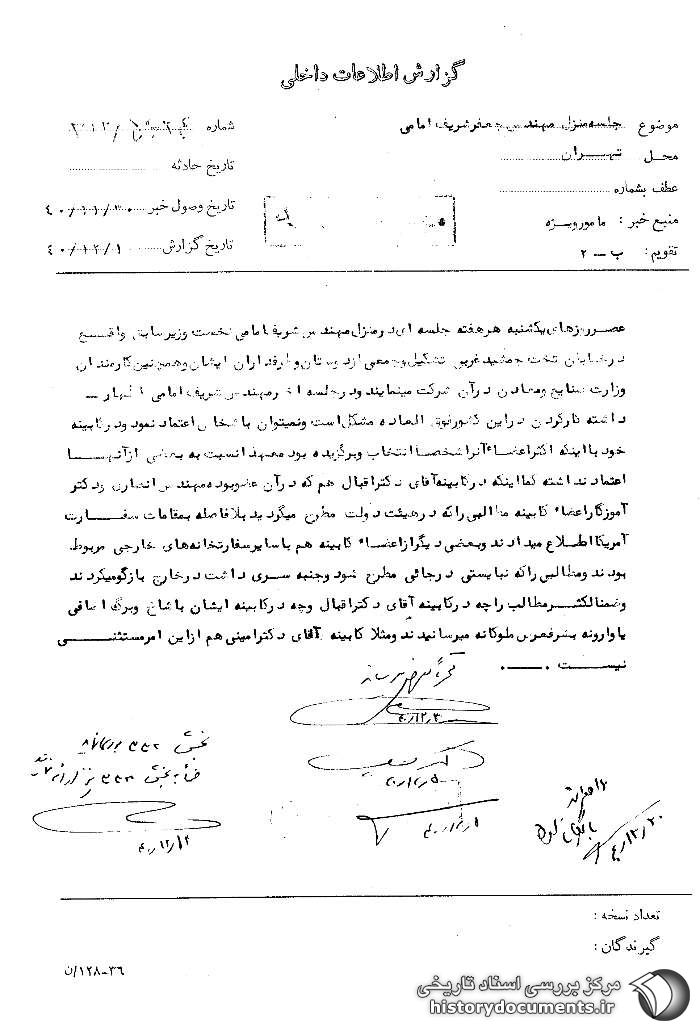 گزارش اطلاعات داخلی
موضوع جلسه منزل مهندس جعفر شریف امامی
شماره
محل تهران
تاریخ حادثه
عطف بشماره
تاریخ وصول خبر ۴۰/۱۱/۳۰
منبع خبر : مامور ویژه
تاریخ گزارش ۴۰/۱۲/۱
تقویم : ب - ۲
عصر روزهای یکشنبه هر هفته جلسه ای در منزل مهندس شریف امامی نخست وزیر سابق واقع
در خیابان تخت جمشید غربی تشکیل و جمعی از دوستان و طرفداران ایشان و همچنین کارمندان
وزارت صنایع و معادن در آن شرکت مینمایند و در جلسه اخیر مهندس شریف امامی اظهار -
داشته کار کردن در این کشور فوق العاده مشکل است و نمیتوان باشخاص اعتماد نمود و در کابینه
خود با اینکه اکثر اعضاء آنرا شخصا انتخاب و برگزیده بود معهذا نسبت به بعضی از آنها
اعتماد نداشته کما اینکه در کابینه آقای دکتر اقبال هم که در آن عضو بوده مهندس انصاری و دکتر
آموزگار اعضاء کابینه مطالبی را که در هیئت دولت مطرح میگردید بلافاصله بمقامات سفارت
آمریکا اطلاع میدادند و بعضی دیگر از اعضاء کابینه هم با سایر سفارتخانه های خارجی مربوط
بودند و مطالبی را که نبایستی در جائی مطرح شود و جنبه سری داشت در خارج بازگو میکردند
و ضمنا اکثر مطالب را چه در کابینه آقای دکتر اقبال و چه در کابینه ایشان با شاخ و برگ اضافی
یا وارونه بشرفعرض ملوکانه میرسانیدند و مثلا کابینه آقای دکتر امینی هم از این امر مستثنی
نیست .
۴۰/۱۲/۳
بخش ۳۳۲
۴۰/۱۲/۵
۴۰/۱۲/۱
بایگانی شود
۴۰/۱۲/۲۰
۴۰/۱۲/۲
تعداد نسخه :
گیرندگان :
۳۶-۱۲۸/ن
مرکز بررسی اسناد تاریخی
historydocuments.ir